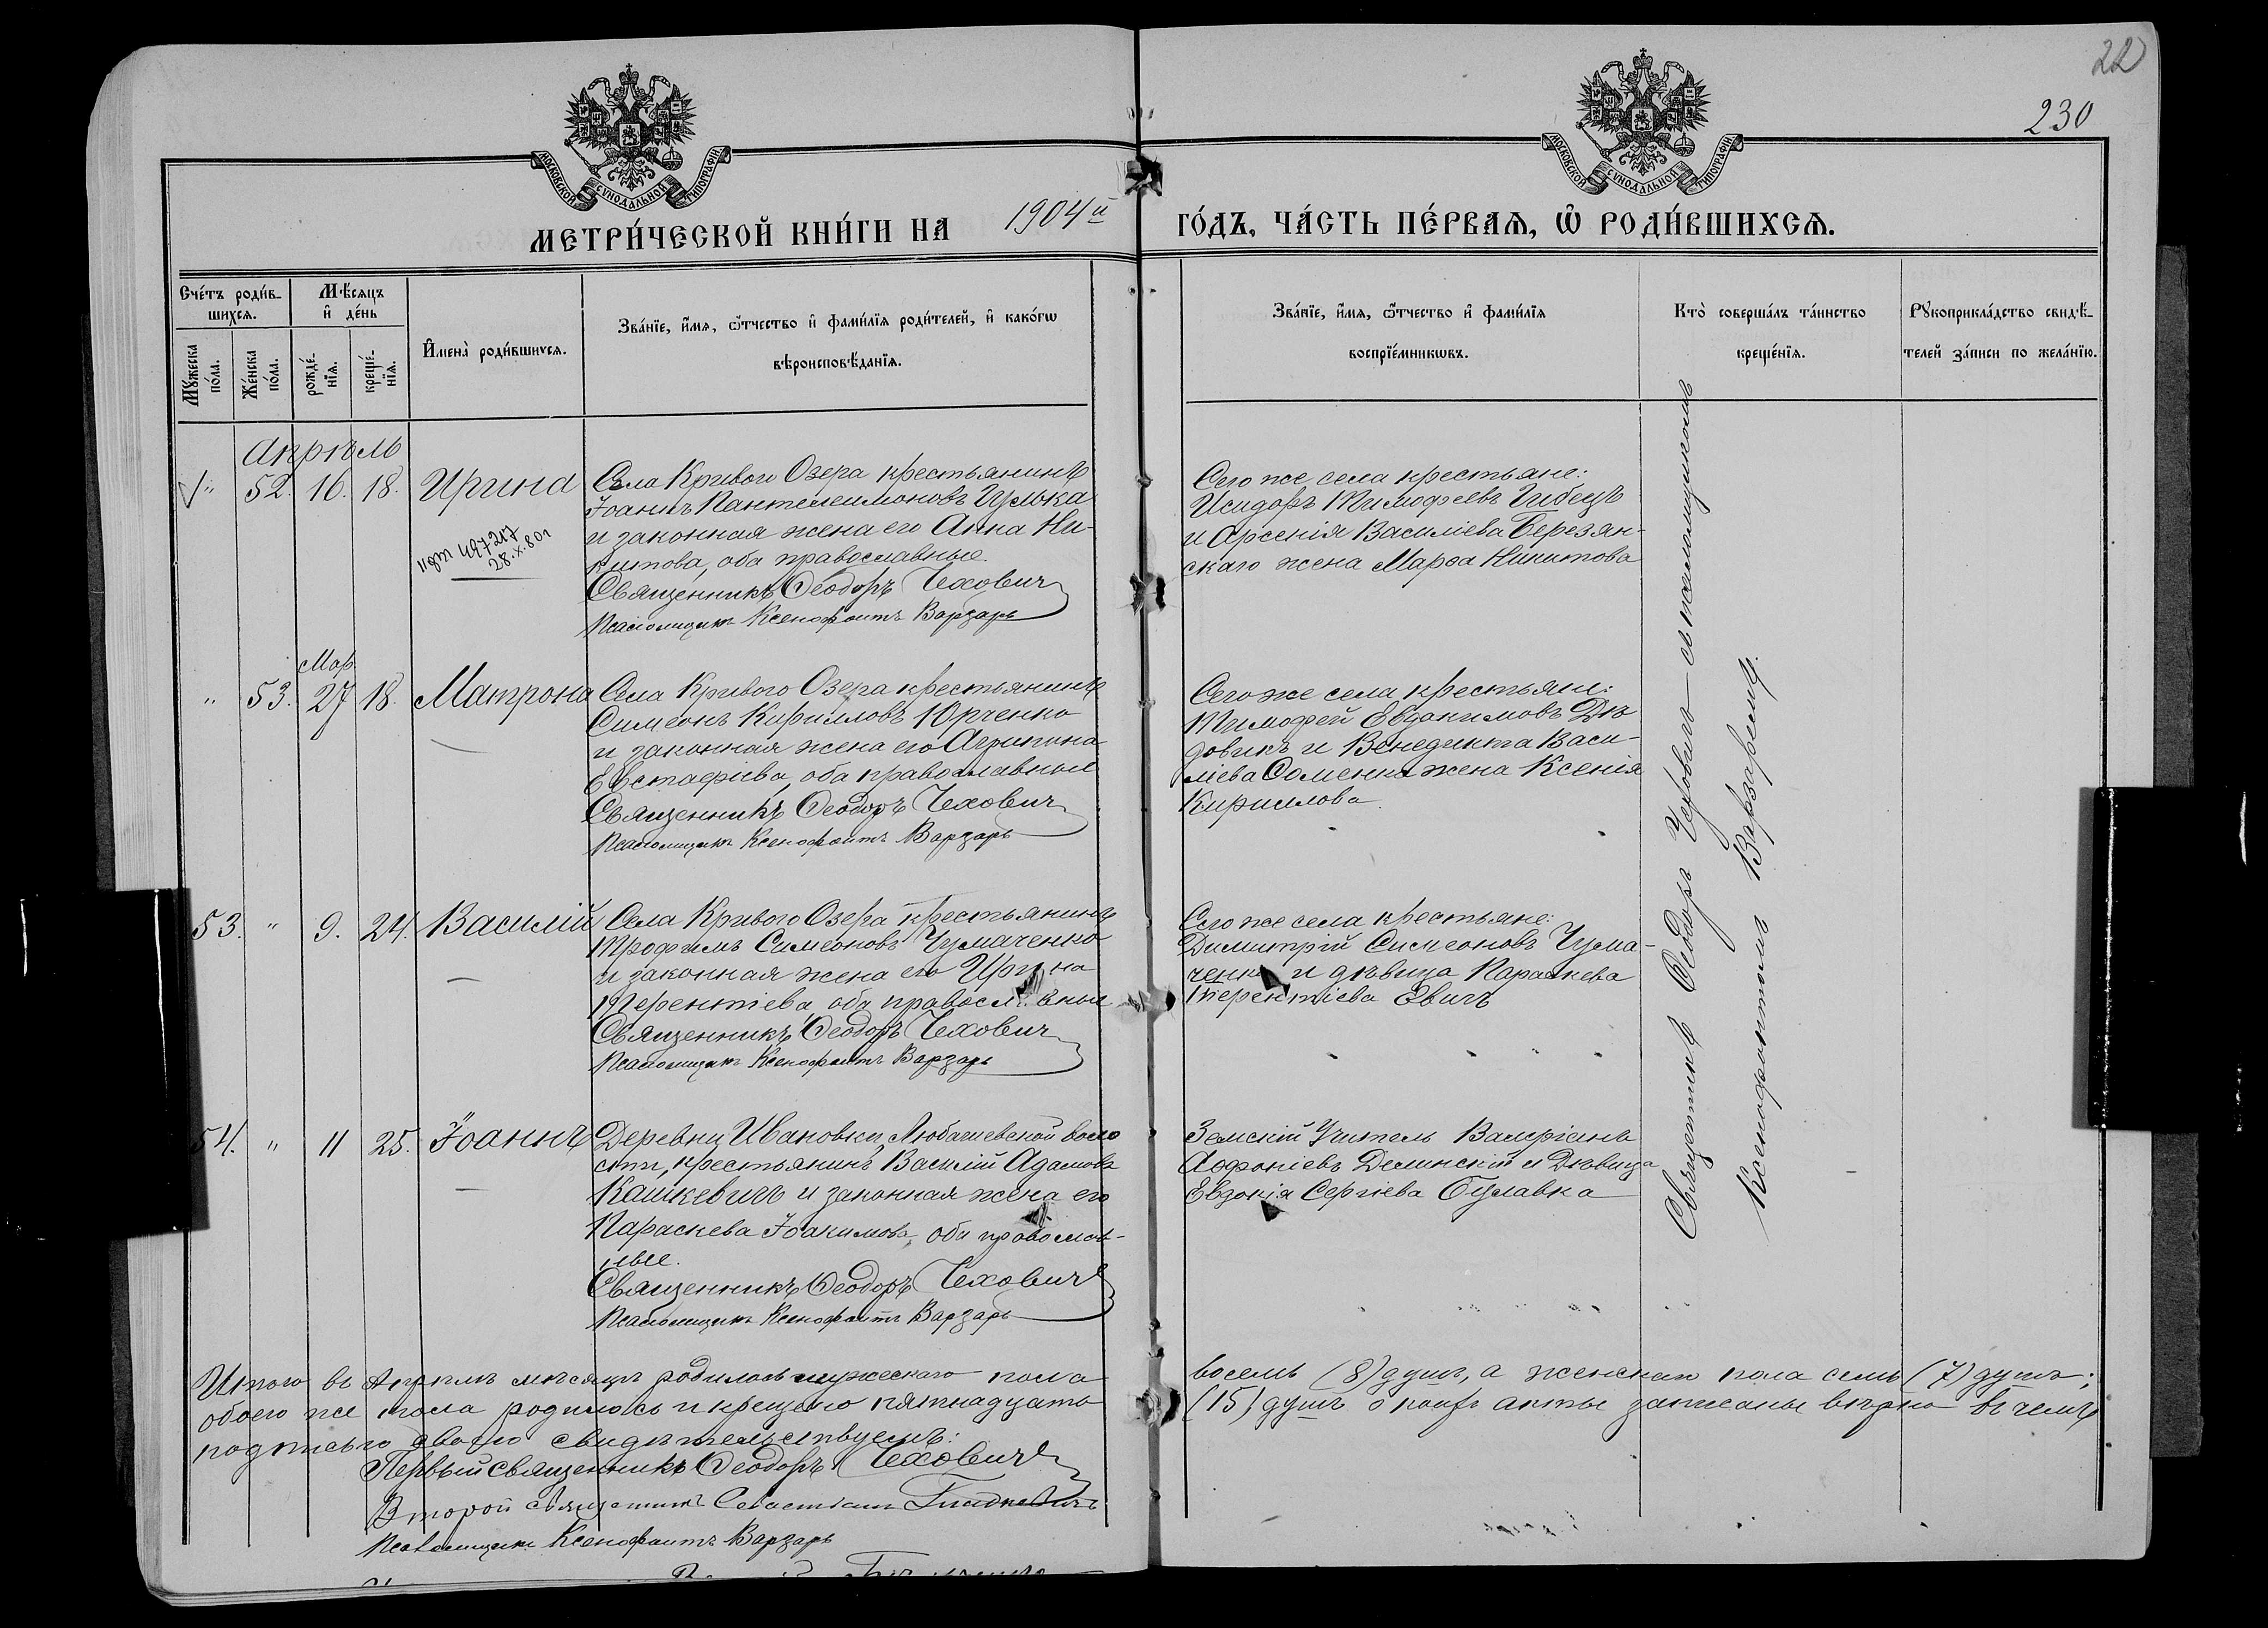 22
230
МОСКОВСКОЙ СѴНОДАЛЬНОЙ ТИПОГРАФІИ
МОСКОВСКОЙ СѴНОДАЛЬНОЙ ТИПОГРАФІИ
МЕТРИ́ЧЕСКОЙ КНИ́ГИ НА 1904й ГО́ДЪ, ЧА́СТЬ ПЕ́РВАѦ, Ѿ РОДИ́ВШИХСѦ.
Сче́тъ роди́в-
шихся.
Мѣ́сяцъ
и҆ де́нь
Мꙋ́жеска по́ла.
Же́нска по́ла.
рожде́-нїя.
креще́-нїя.
И҆мена̀ роди́вшихся.
Зва́нїе, и҆́мя, ѻ҆́тчество и҆ фами́лїя роди́телей, и҆ како́гѡ
вѣроисповѣ́данїя.
Зва́нїе, и҆́мя, ѻ҆́тчество и҆ фами́лїя
воспрїе́мникѡвъ.
Кто̀ соверша́лъ та́инство
креще́нїя.
Рꙋкоприкла́дство свидѣ́-
телей за́писи по жела́нїю.
Апрѣль
" 52. 16. 18. Ирина
Села Кривого Озера крестьянинъ
Іоаннъ Пантелеимоновъ Гулька
и законная жена его Анна Ни-
китова, оба православные
Священникъ Ѳеодоръ Чехович
Псаломщикъ Ксенофонтъ Варзарь
Сего же села крестьяне:
Исидоръ Тимофеевъ Чибецъ
и Арсенія Василіева Березян-
скаго жена Марѳа Никитова
497217
28.X.80г
Мар
" 53. 27 18. Матрона
Села Кривого Озера крестьянинъ
Симеонъ Кирилловъ Юрченко
и законная жена его Агрипина
Евстафіева, оба православные
Священникъ Ѳеодоръ Чехович
Псаломщикъ Ксенофонтъ Варзарь
Сего же села крестьяне:
Тимофей Евдокимовъ Дѣ
довикъ и Венедикта Васи-
ліева Соменка жена Ксенія
Кириллова.
53. " 9. 24. Василій
Села Кривого Озера крестьянинъ
Трофимъ Симеоновъ Чумаченко
и законная жена его Ирина
Терентіева, оба православные
Священникъ Ѳеодоръ Чехович
Псаломщикъ Ксенофонтъ Варзарь
Сего же села крестьяне:
Димитрій Симеоновъ Чума-
ченко и дѣвица Параскева
Терентіева Евичъ
54. " 11 25. Іоаннъ
Деревни Ивановки, Любашевской воло
сти, крестьянинъ Василій Адамовъ
Кашкевичъ и законная жена его
Параскева Іоакимова, оба православ-
ные.
Священникъ Ѳеодоръ Чехович
Псаломщикъ Ксенофонтъ Варзарь
Земскій Учитель Валеріанъ
Аѳоніевъ Делинскій и Дѣвица
Евдокія Сергіева Булавка
Священникъ Ѳеодоръ Чехович съ псаломщикомъ
Ксенофонтомъ Варзаремъ.
Итого въ Апрѣлѣ мѣсяцѣ родилось мужескаго пола восемь (8) душъ, а женскаго пола семь (7) душъ;
обоего же пола родилось и крещено пятнадцать (15) душъ о коихъ акты записаны вѣрно въ чемъ
подписью своею свидѣтельствуемъ:
Первый священникъ Ѳеодоръ Чехович
Второй священникъ Севастіан
Псаломщикъ Ксенофонтъ Варзарь